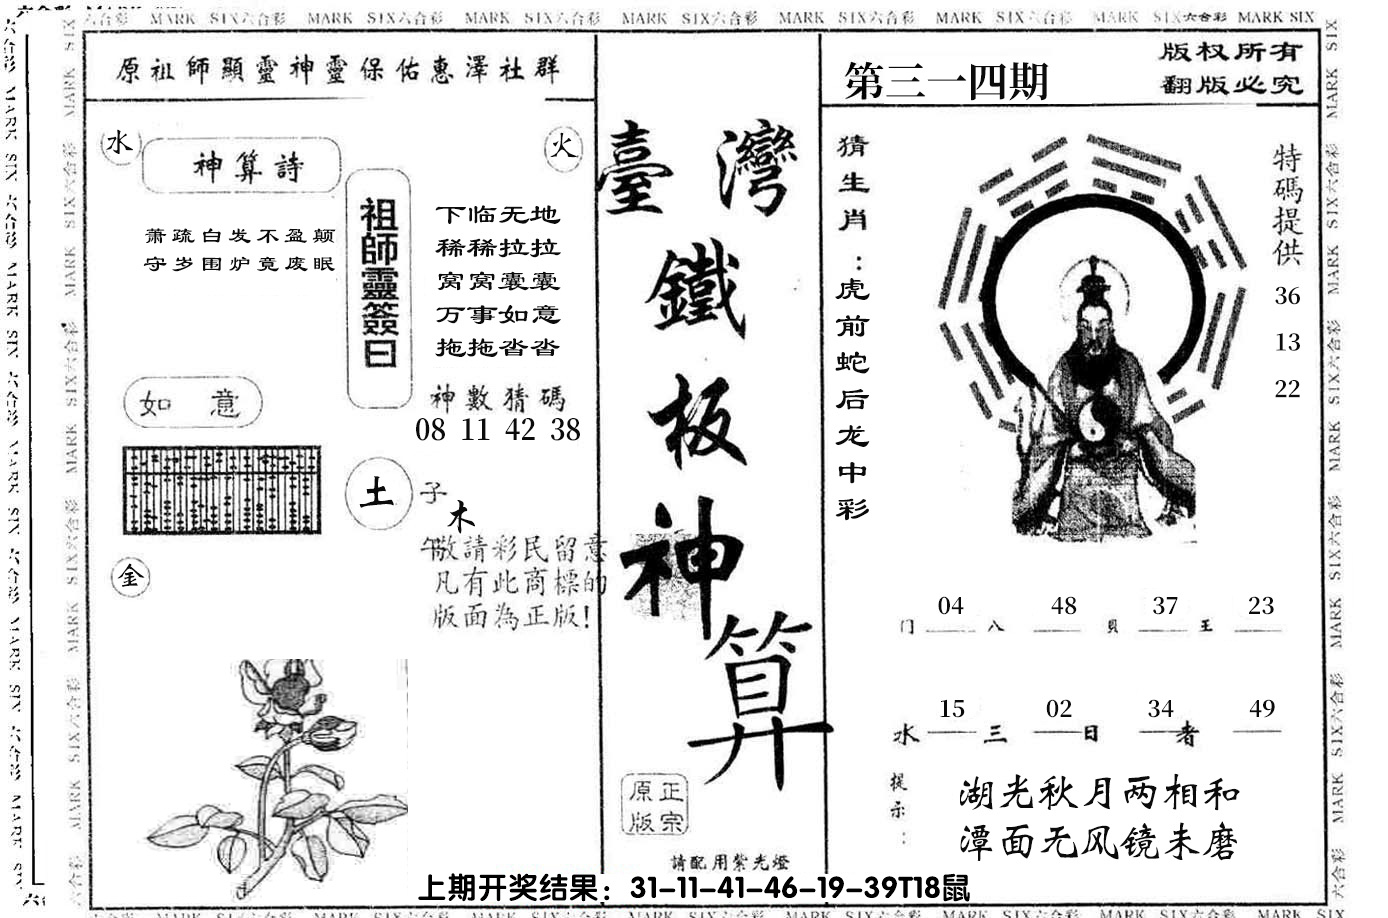 六合彩 MARK SIX六合彩 MARK SIX六合彩 MARK SIX六合彩 MARK SIX六合彩 MARK SIX六合彩 MARK SIX六合彩 MARK SIX六合彩 MARK SIX
原祖師顯靈神靈保佑惠澤社群
水
神算詩
火
萧疏白发不盈颠
守岁围炉竟废眠
祖師靈簽曰
下临无地
稀稀拉拉
窝窝囊囊
万事如意
拖拖沓沓
神數猜碼
08 11 42 38
如 意
土
子
木
午
金
敬請彩民留意
凡有此商標的
版面為正版!
臺灣
鐵
板
神
算
原正
版宗
請配用紫光燈
第三一四期
版权所有
翻版必究
猜生肖:虎前蛇后龙中彩
特碼提供
36
13
22
04 48 37 23
门 八 貝 王
15 02 34 49
水 三 日 者
提示:
湖光秋月两相和
潭面无风镜未磨
上期开奖结果：31-11-41-46-19-39T18鼠